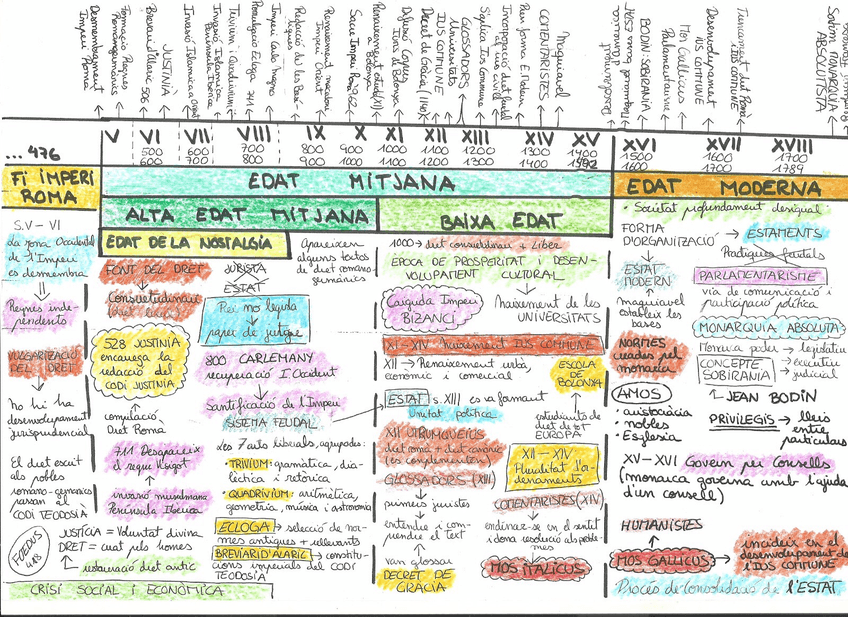 Desmembrament
Imperi Roma
Formació Regnes
Romanogermànics
Breviari d'Alaric 506
JUSTINIÀ
Invasió Islàmica
Península Ibèrica
Trivium i Quadrivium
Promulgació Ecloga 741
Imperi Carlo Magno
Redacció de les Basíliques
Imperi Orient
Sacre Imperi Romà 962
Renaixement
a Bolonya
Difusió Corpus
Iuris de Bolonya
Decret de Gràcia (1140)
IUS COMMUNE
Universitats
GLOSSADORS
Síplica Ius Commune
Incorporació dret feudal
al ius civile
COMENTARISTES
Maquiavel
BODIN-SOBIRANIA
Parlamentarisme
Mos Gallicus
Desenvolupament
IUS COMMUNE
Trencament dret Romà
i IUS COMMUNE
MONARQUIA
ABSOLUTISTA
... 476
V VI VII VIII IX X XI XII XIII XIV XV XVI XVII XVIII
500 600 700 800 900 1000 1100 1200 1300 1400 1500 1600 1700
600 700 800 900 1000 1100 1200 1300 1400 1492 1600 1700 1789
FI IMPERI
ROMA
EDAT MITJANA
EDAT MODERNA
ALTA EDAT MITJANA
BAIXA EDAT
S.V - VI
La zona Occidental
de l'Imperi
es desmembra
Regnes inde-
pendents
VULGARITZACIÓ
DEL DRET
No hi ha
desenvolupament
jurisprudencial
El dret escrit
als pobles
romano-germànics
passan al
CODI TEODOSIÀ
FOEDUS
418
CRISI SOCIAL I ECONÒMICA
EDAT DE LA NOSTALGIA
FONT DEL DRET
Consuetudinari
528 JUSTINIÀ
encarrega la
redacció del
CODI JUSTINIÀ
compilació
Dret Romà
711 Desapareix
el regne Visigot
invasió musulmana
Península Ibèrica
JUSTÍCIA = Voluntat divina
DRET = creat pels homes
restauració dret antic
JURISTA
ESTAT
Rei no legisla
paper de jutge
Apareixen
alguns textos
de dret romano
germànics
800 CARLEMANY
recuperació I. Occident
Santificació de l'Imperi
SISTEMA FEUDAL
Les 7 arts liberals, agrupades:
• TRIVIUM: gramàtica, dia-
lèctica i retòrica
• QUADRIVIUM: aritmètica,
geometria, música i astronomia
ECLOGA → selecció de nor-
mes antigues + rellevants
BREVIARI D'ALARIC → constitu-
cions imperials del CODI
TEODOSIÀ
1000 → dret consuetudinari + Liber
EPOCA DE PROSPERITAT I DESEN-
VOLUPAMENT CULTURAL
Caiguda Imperi
BIZANCÍ
Naixement de les
UNIVERSITATS
XI - XIV Naixement IUS COMMUNE
XII → Renaixement urbà,
econòmic i comercial
ESCOLA
DE
BOLONYA
ESTAT s. XIII es va formant
Unitat política
estudiants de
dret de tot
EUROPA
XII UTRUMQUEIUS
dret romà + dret canònic
(es complementen)
GLOSSADORS (XIII)
primers juristes
entendre i com-
prendre el text
van glossar
DECRET DE
GRÀCIA
XII - XIV
Pluralitat d'or-
denaments
COMENTARISTES (XIV)
endinsar-se en el sentit
i dona resolució als proble-
mes
MOS ITALICUS
• Societat profundament desigual:
FORMA
D'ORGANITZACIÓ → ESTAMENTS
Pràctiques feudals
ESTAT
MODERN
maquiavel
estableix les
bases
PARLAMENTARISME
via de comunicació i
participació política
MONARQUIA ABSOLUTA
NORMES
creades pel
monarca
Monarca poder → legislatiu
→ executiu
→ judicial
CONCEPTE
SOBIRANIA
JEAN BODIN
AMOS
• aristocràcia
• nobles
• Església
PRIVILEGIS → lleis
entre
particulars
XV-XVI Govern per Consells
(monarca governa amb l'ajuda
d'un consell)
HUMANISTES
MOS GALLICUS
incideix en el
desenvolupament de
l'IUS COMMUNE
Procés de Consolidació de l'ESTAT